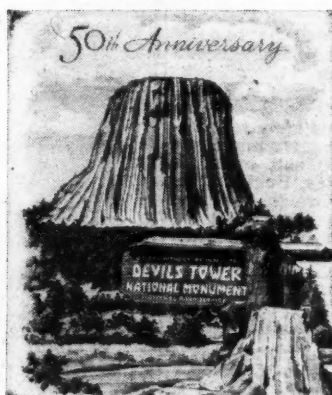 50th Anniversary
DEVILS TOWER
NATIONAL MONUMENT